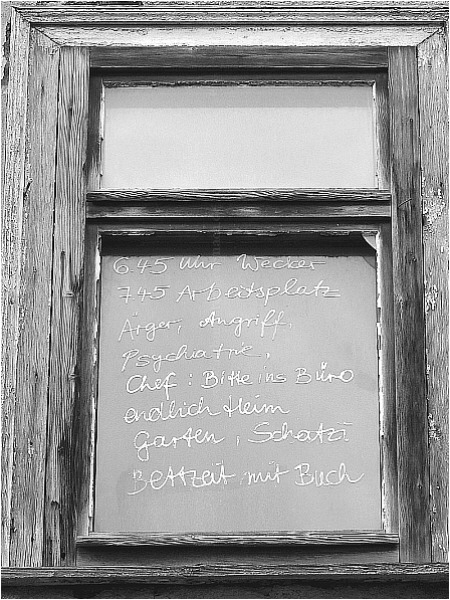 6.45 Uhr Wecker
7.45 Arbeitsplatz
Ärger, Angriff,
Psychiatrie,
Chef: Bitte ins Büro
endlich Heim
Garten, Schatzi
Bettzeit mit Buch